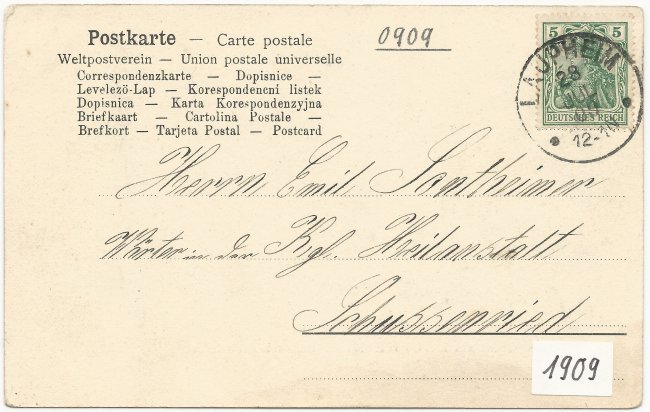 Postkarte — Carte postale
Weltpostverein — Union postale universelle
Correspondenzkarte — Dopisnice —
Levelező-Lap — Korespondencní listek
Dopisnica — Karta Korespondenzyjna
Briefkaart — Cartolina Postale —
Brefkort — Tarjeta Postal — Postcard
0909
5 5
DEUTSCHES REICH
LAUPHEIM
28
JUL
12-1N
Herrn Emil Sontheimer
Wärter in der Kgl. Heilanstalt
Schussenried
1909